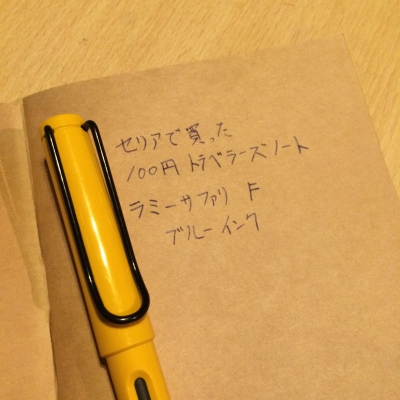 セリアで買った
100円 トラベラーズノート
ラミーサファリ F
ブルーインク